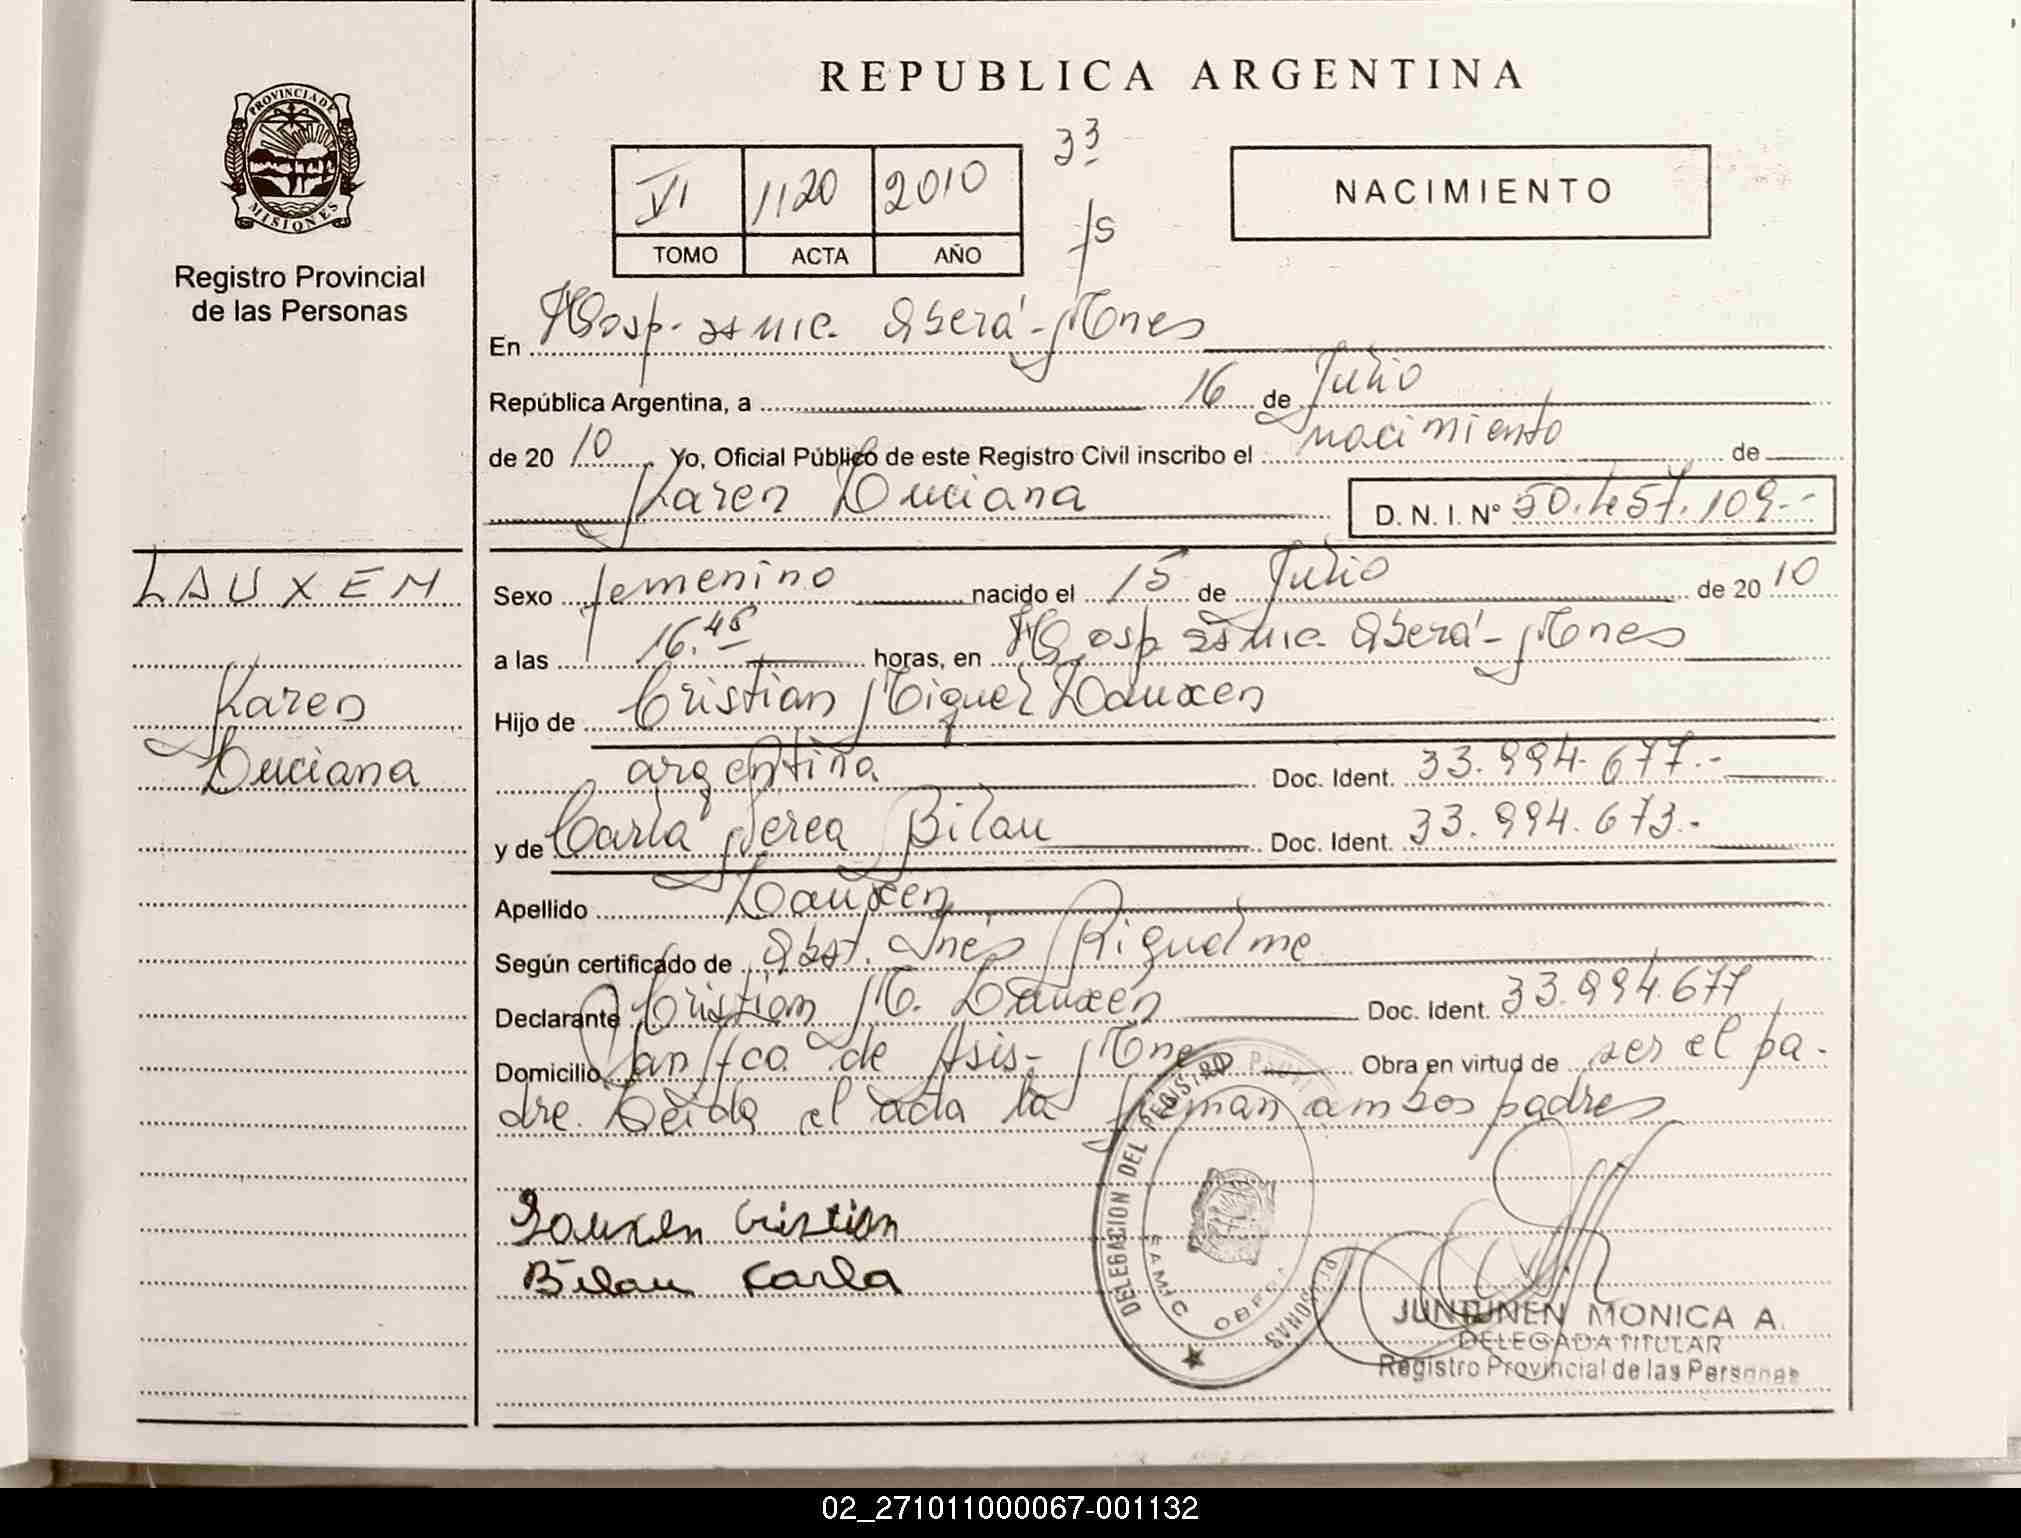 REPUBLICA ARGENTINA
PROVINCIA DE
MISIONES
Registro Provincial
de las Personas
VI 1120 2010
TOMO ACTA AÑO
33
fs
NACIMIENTO
En Hosp. Oberá - Mnes
República Argentina, a 16 de Julio
de 20 10 Yo, Oficial Público de este Registro Civil inscribo el nacimiento de
Karen Luciana D. N. I. Nº 50.457.109.-
LAUXEN
Karen
Luciana
Sexo femenino nacido el 15 de Julio de 20 10
a las 16.45 horas, en Hosp. Oberá - Mnes
Hijo de Cristian Miguel Lauxen
argentina Doc. Ident. 33.994.677.-
y de Carla Bilau Doc. Ident. 33.994.673.-
Apellido Lauxen
Según certificado de Obst. Inés Riquelme
Declarante Cristian M. Lauxen Doc. Ident. 33.994.677
Domicilio San Fco. de Asis - Mnes Obra en virtud de ser el pa-
dre. Leida el acta la firman ambos padres
Lauxen Cristian
Bilau Carla
DELEGACION DEL REGISTRO PROVI
PERSONAS
SAMIC OBERA
JUNTUNEN MONICA A.
DELEGADA TITULAR
Registro Provincial de las Personas
02_271011000067-001132